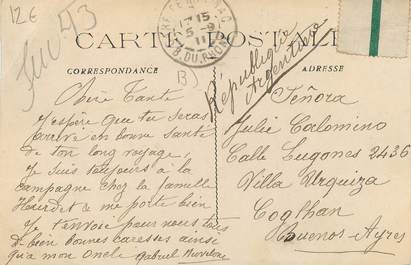 12€
CARTE POSTALE
17 15
5-9
11
B. DU RHONE
B)
CORRESPONDANCE
ADRESSE
République
Argentine
Chère Tante
J'espère que tu seras
arrivé en bonne santé
de ton long voyage.
Je suis toujours à la
campagne chez la famille
et me porte bien
Je t'envoie pour nous tous
de bien bonnes caresses ainsi
qu'a mon Oncle Gabriel
Señora
Julie Calomino
Calle Lugones 2436
Villa Urquiza
Coghlan
Buenos-Ayres